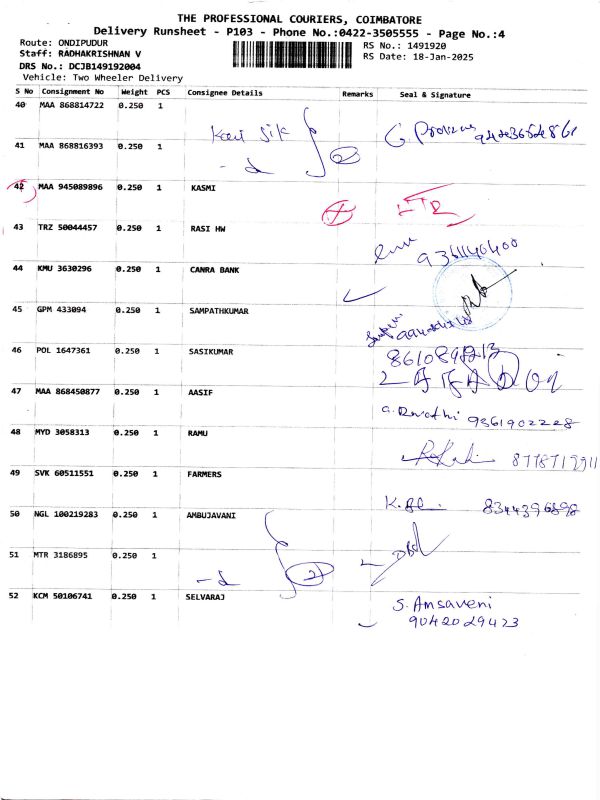 THE PROFESSIONAL COURIERS, COIMBATORE
Delivery Runsheet - P103 - Phone No.:0422-3505555 - Page No.:4
Route: ONDIPUDUR
RS No.: 1491920
Staff: RADHAKRISHNAN V
RS Date: 18-Jan-2025
DRS No.: DCJB149192004
Vehicle: Two Wheeler Delivery
S No Consignment No Weight PCS Consignee Details Remarks Seal & Signature
40 MAA 868814722 0.250 1
41 MAA 868816393 0.250 1
42 MAA 945089896 0.250 1 KASMI
43 TRZ 50044457 0.250 1 RASI HW
9361140400
44 KMU 3630296 0.250 1 CANRA BANK
45 GPM 433094 0.250 1 SAMPATHKUMAR
46 POL 1647361 0.250 1 SASIKUMAR
47 MAA 868450877 0.250 1 AASIF
9361902228
48 MYD 3058313 0.250 1 RAMU
49 SVK 60511551 0.250 1 FARMERS
8344396898
50 NGL 100219283 0.250 1 AMBUJAVANI
51 MTR 3186895 0.250 1
52 KCM 50106741 0.250 1 SELVARAJ
S. Amsaveni
9042029423